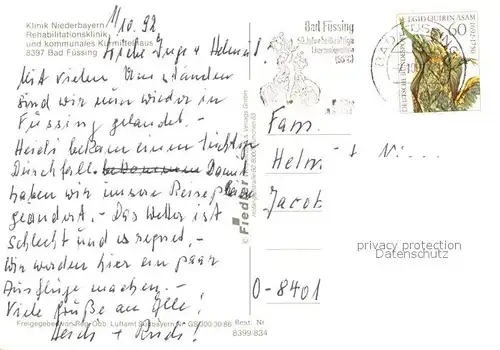 Klinik Niederbayern
Rehabilitationsklinik
und kommunales Kurmittelhaus
8397 Bad Füssing
1/10.92
Liebe Inge + Helmut!
Mit vielen Umständen
sind wir nun wieder in
Füssing gelandet. -
Heidi bekam einen tüchtigen
Durchfall. Damit
haben wir unsere Reisepläne
geändert. - Das Wetter ist
schlecht und es regnet. -
Wir werden hier ein paar
Ausflüge machen. -
Viele Grüße an Elle!
Heidi + Rudi!
Freigegeben von Reg. Obb. Luftamt Südbayern Nr. GS 300/30/86
Best. Nr.
8399/834
© Fiedler
Bad Füssing
EGID QUIRIN ASAM
1692-1750
60
DEUTSCHE BUNDESPOST
Fam.
Helmut
Jacob
O-8401
privacy protection
Datenschutz